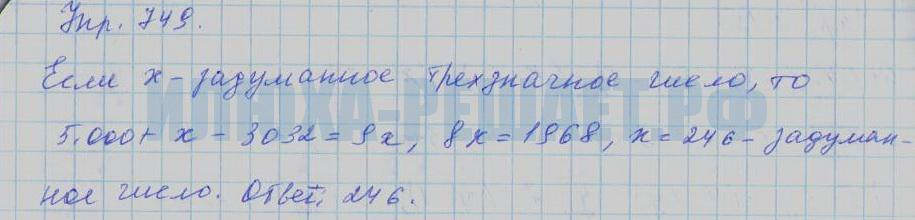 Упр. 749.
Если x - задуманное трехзначное число, то
ИЛЮХА-РЕШАЕТ.РФ
5.000 + x - 3032 = 9x, 8x = 1968, x = 246 - задуман-
ное число. Ответ: 246.